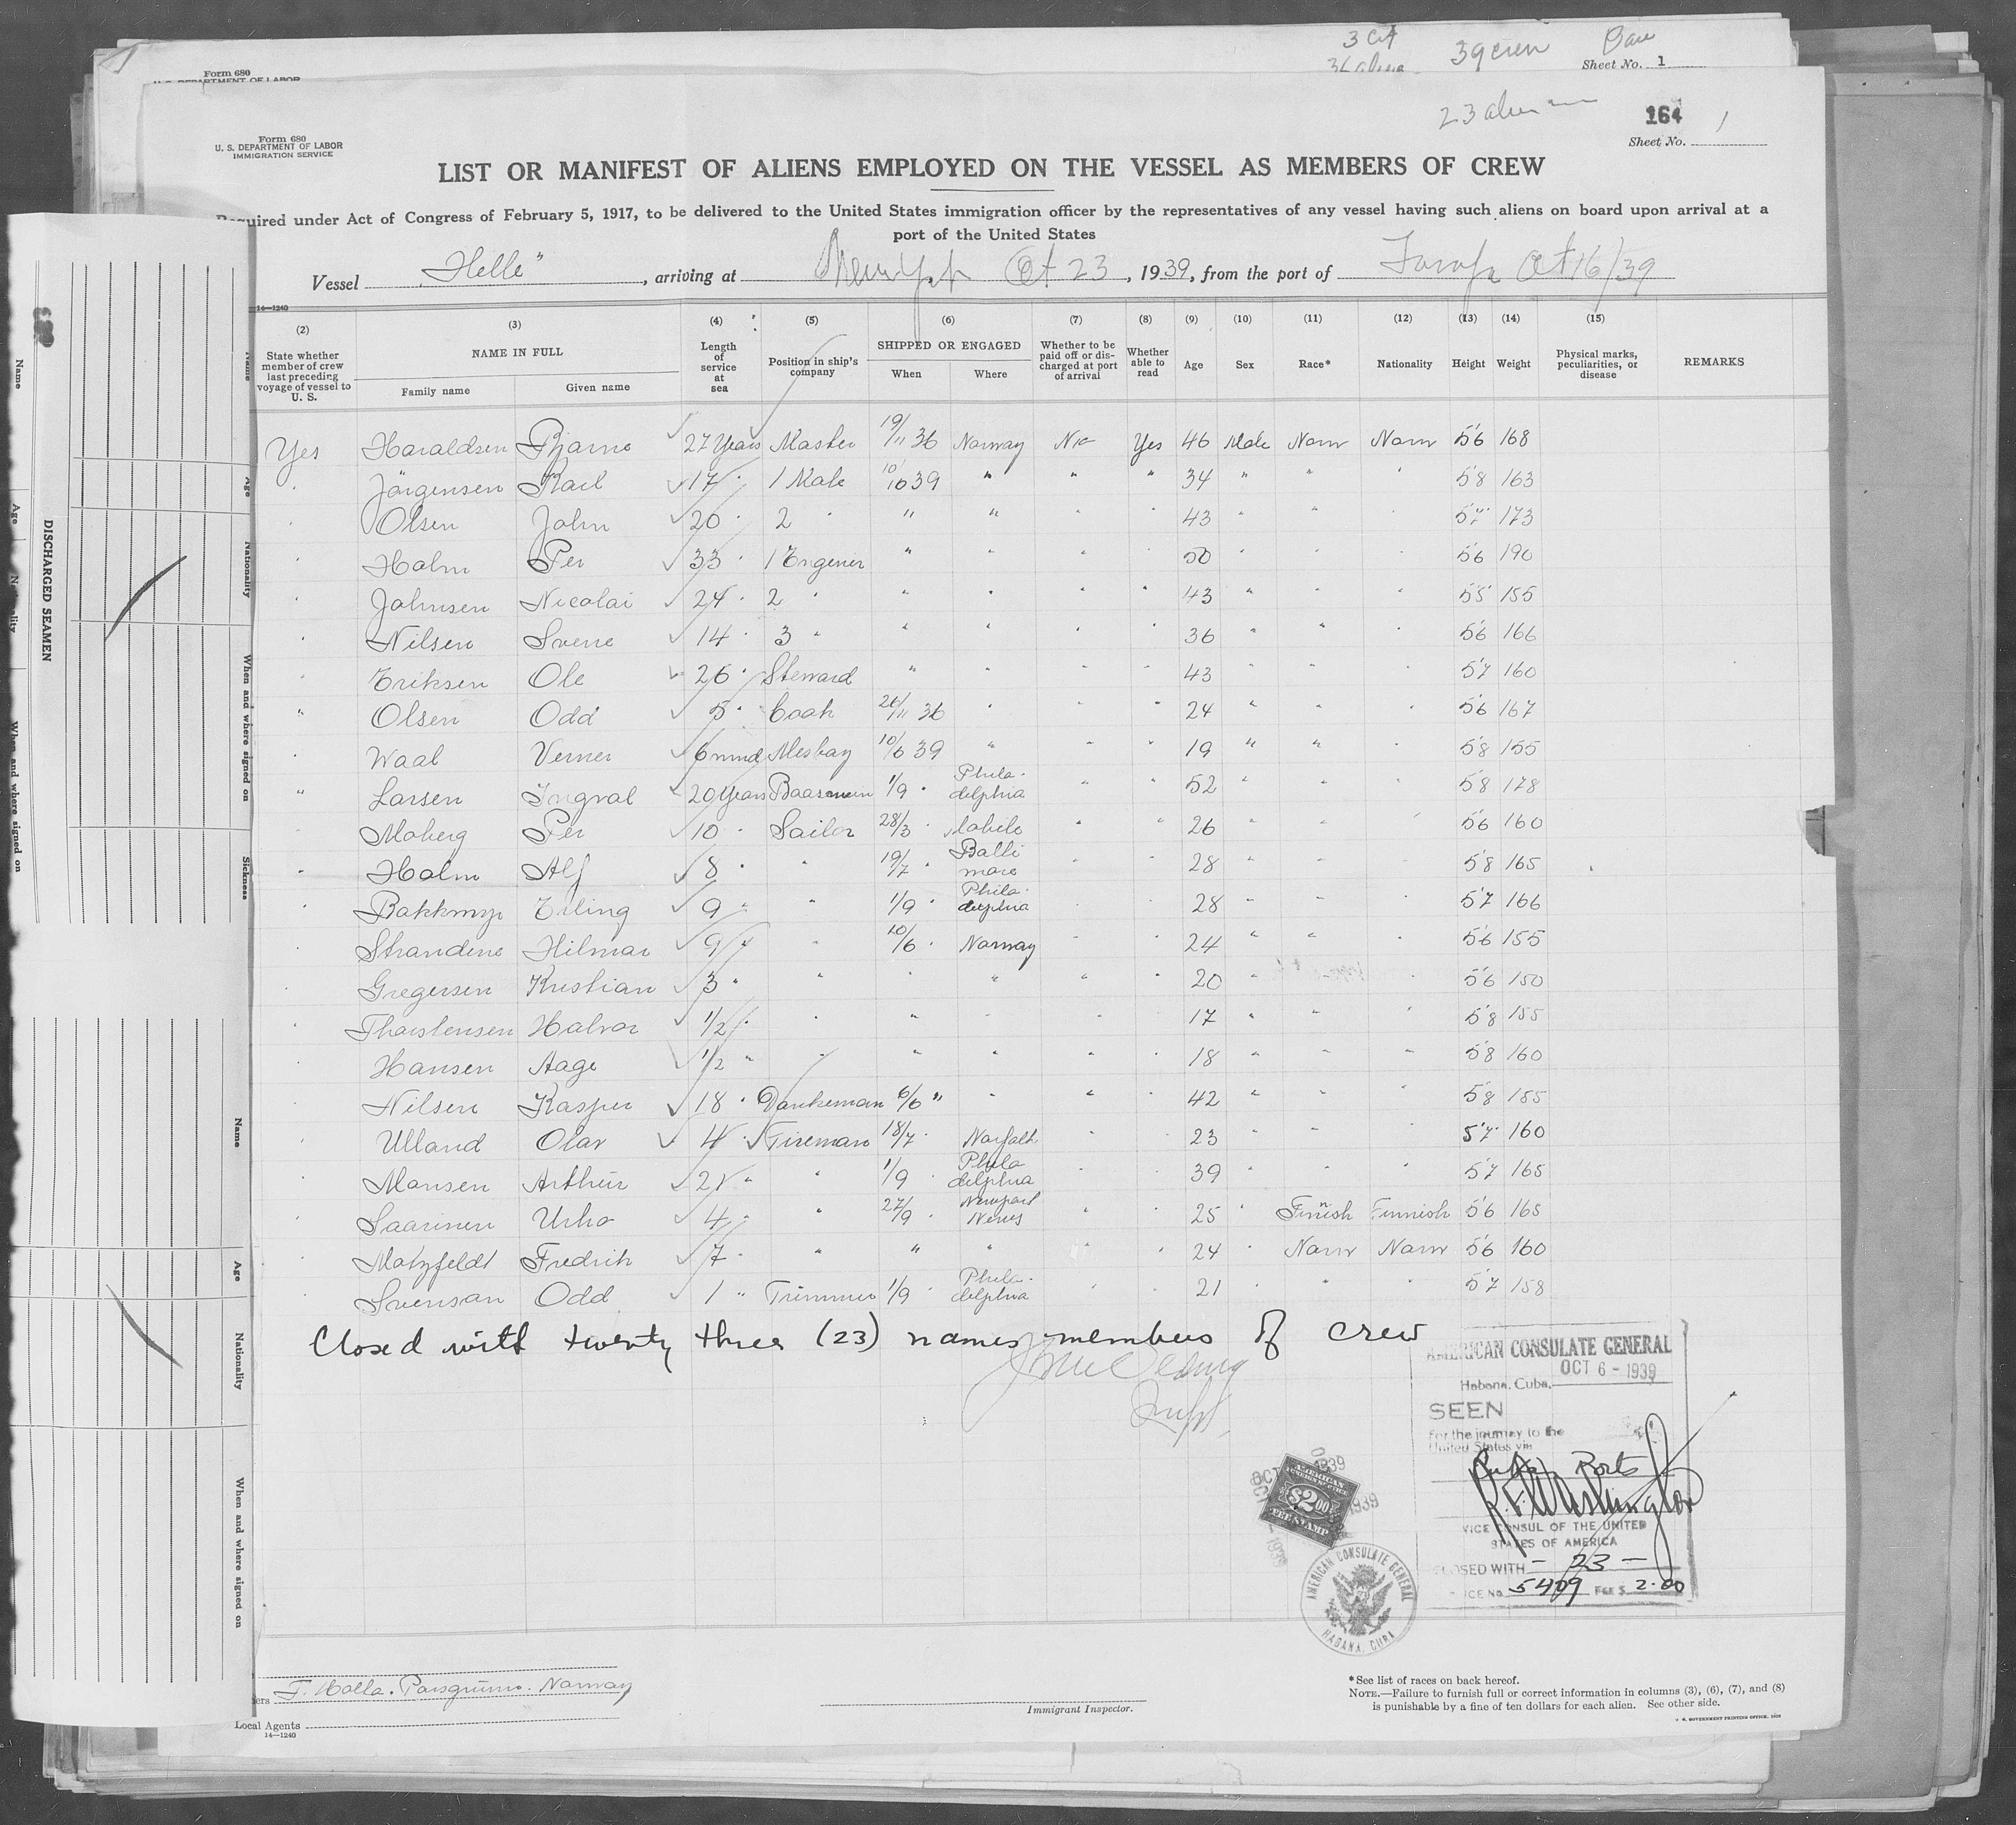 3 Cit 39 crew
Form 680
U. S. DEPARTMENT OF LABOR
Sheet No. 1
23 alien
164
Form 680
U. S. DEPARTMENT OF LABOR
IMMIGRATION SERVICE
Sheet No.
LIST OR MANIFEST OF ALIENS EMPLOYED ON THE VESSEL AS MEMBERS OF CREW
Required under Act of Congress of February 5, 1917, to be delivered to the United States immigration officer by the representatives of any vessel having such aliens on board upon arrival at a
port of the United States
Vessel „Helle" , arriving at Oct 23 , 1939, from the port of Oct 16/39
14—1240
(2) (3) (4) (5) (6) (7) (8) (9) (10) (11) (12) (13) (14) (15)
State whether member of crew last preceding voyage of vessel to U. S.
NAME IN FULL
Family name Given name
Length of service at sea
Position in ship's company
SHIPPED OR ENGAGED
When Where
Whether to be paid off or discharged at port of arrival
Whether able to read
Age Sex Race* Nationality Height Weight
Physical marks, peculiarities, or disease
REMARKS
Yes Haraldsen Bjarne 27 Years Master 19/11 36 Norway No Yes 46 Male Norw Norw 5'6 168
" Jörgensen Karl 17 " 1 Mate 10/6 39 " " " 34 " " " 5'8 163
" Olsen John 20 " 2 " " " " " 43 " " " 5'7" 173
" Holm Per 33 " 1 Engener " " " " 50 " " " 5'6 190
" Johnsen Nicolai 24 " 2 " " " " " 43 " " " 5'5" 155
" Nilsen Sverre 14 " 3 " " " " " 36 " " " 5'6 166
" Eriksen Ole 26 " Steward " " " " 43 " " " 5'7 160
" Olsen Odd 5 " Cook 26/11 36 " " " 24 " " " 5'6 167
" Waal Verner 6 mnd Mesbay 10/6 39 " " " 19 " " " 5'8 155
" Larsen Ingval 20 Years 1/9 " Philadelphia " " 52 " " " 5'8 178
" Moberg Per 10 " Sailor 28/3 " Mobile " " 26 " " " 5'6 160
" Holm Alf 8 " " 19/7 " Baltimore " " 28 " " " 5'8 165
" Bakkmyr Erling 9 " " 1/9 " Philadelphia " " 28 " " " 5'7 166
" Strandene Hilmar 9 " " 10/6 " Norway " " 24 " " " 5'6 155
" Gregersen Kristian 3 " " " " " " 20 " " " 5'6 150
" Thorstensen Halvor 1/2 " " " " " " 17 " " " 5'8 155
" Hansen Aage 1/2 " " " " " " 18 " " " 5'8 160
" Nilsen Kasper 18 " Donkeman 6/6 " " " " 42 " " " 5'8 185
" Ulland Olav 4 " Fireman 18/7 " Norfolk " " 23 " " " 5'7" 160
" Monsen Arthur 21 " " 1/9 " Philadelphia " " 39 " " " 5'7 165
" Saarinen Urho 4 " " 27/9 " Newport News " " 25 " Finish Finnish 5'6 165
" Motzfeldt Fredrik 7 " " " " " " 24 " Norw Norw 5'6 160
" Svensan Odd 1 " Trimmer 1/9 " Philadelphia " " 21 " " " 5'7 158
Closed with twenty three (23) names members of crew
AMERICAN CONSULATE GENERAL
OCT 6 - 1939
Habana, Cuba,
SEEN
For the journey to the
United States via
Ports
VICE CONSUL OF THE UNITED
STATES OF AMERICA
CLOSED WITH - 23 -
5409 FEE $ 2.00
AMERICAN
$2.00
FEE STAMP
AMERICAN CONSULATE GENERAL
HABANA, CUBA
Norway
Local Agents
14—1240
Immigrant Inspector.
*See list of races on back hereof.
NOTE.—Failure to furnish full or correct information in columns (3), (6), (7), and (8)
is punishable by a fine of ten dollars for each alien. See other side.
U. S. GOVERNMENT PRINTING OFFICE
DISCHARGED SEAMEN
Name
Age
Nationality
When and where signed on
Sickness
Name
Age
Nationality
When and where signed on